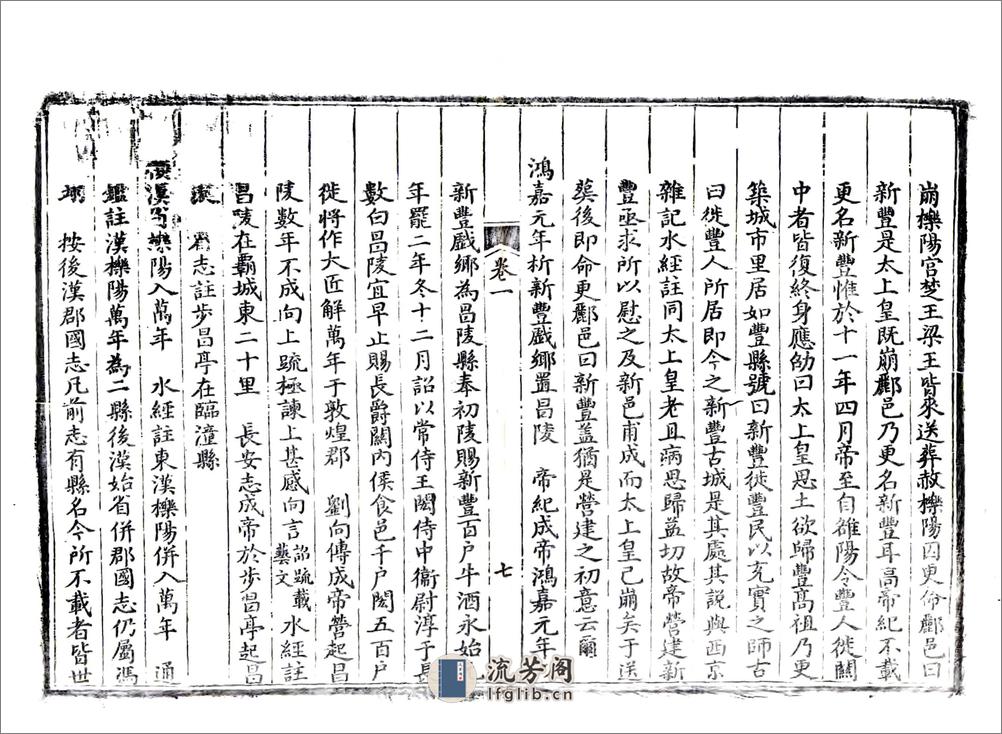 崩櫟陽宫楚王梁王皆來送葬赦櫟陽囚更命酈邑曰
新豐是太上皇既崩酈邑乃更名新豐耳高帝紀不載
更名新豐惟於十一年四月帝至自雒陽令豐人徙關
中者皆復終身應劭曰太上皇思土欲歸豐髙祖乃更
築城市里居如豐縣號曰新豐徙豐民以充實之師古
曰徙豐人所居即今之新豐古城是其處其説與西京
雜記水經註同太上皇老且病思歸益切故帝營建新
豐亟求所以慰之及新邑甫成而太上皇已崩矣于送
葬後即命更酈邑曰新豐盖猶是營建之初意云爾
鴻嘉元年析新豐戲鄉置昌陵　帝紀成帝鴻嘉元年
卷一
七
新豐戲鄉為昌陵縣奉初陵賜新豐百户牛酒永始
年罷二年冬十二月詔以常侍王閎侍中衛尉淳于長
數白昌陵宜早止賜長爵關内侯食邑千户閎五百户
徙將作大匠解萬年于敦煌郡　劉向傳成帝營起昌
陵數年不成向上疏極諫上甚感向言詔疏載藝文水經註
昌陵在霸城東二十里　長安志成帝於步昌亭起昌
志註步昌亭在臨潼縣
漢省櫟陽入萬年　水經註東漢櫟陽併入萬年　通
鑑註漢櫟陽萬年為二縣後漢始省併郡國志仍屬馮
翊　按後漢郡國志凡前志有縣名今所不載者皆世
流芳阁
lfglib.cn